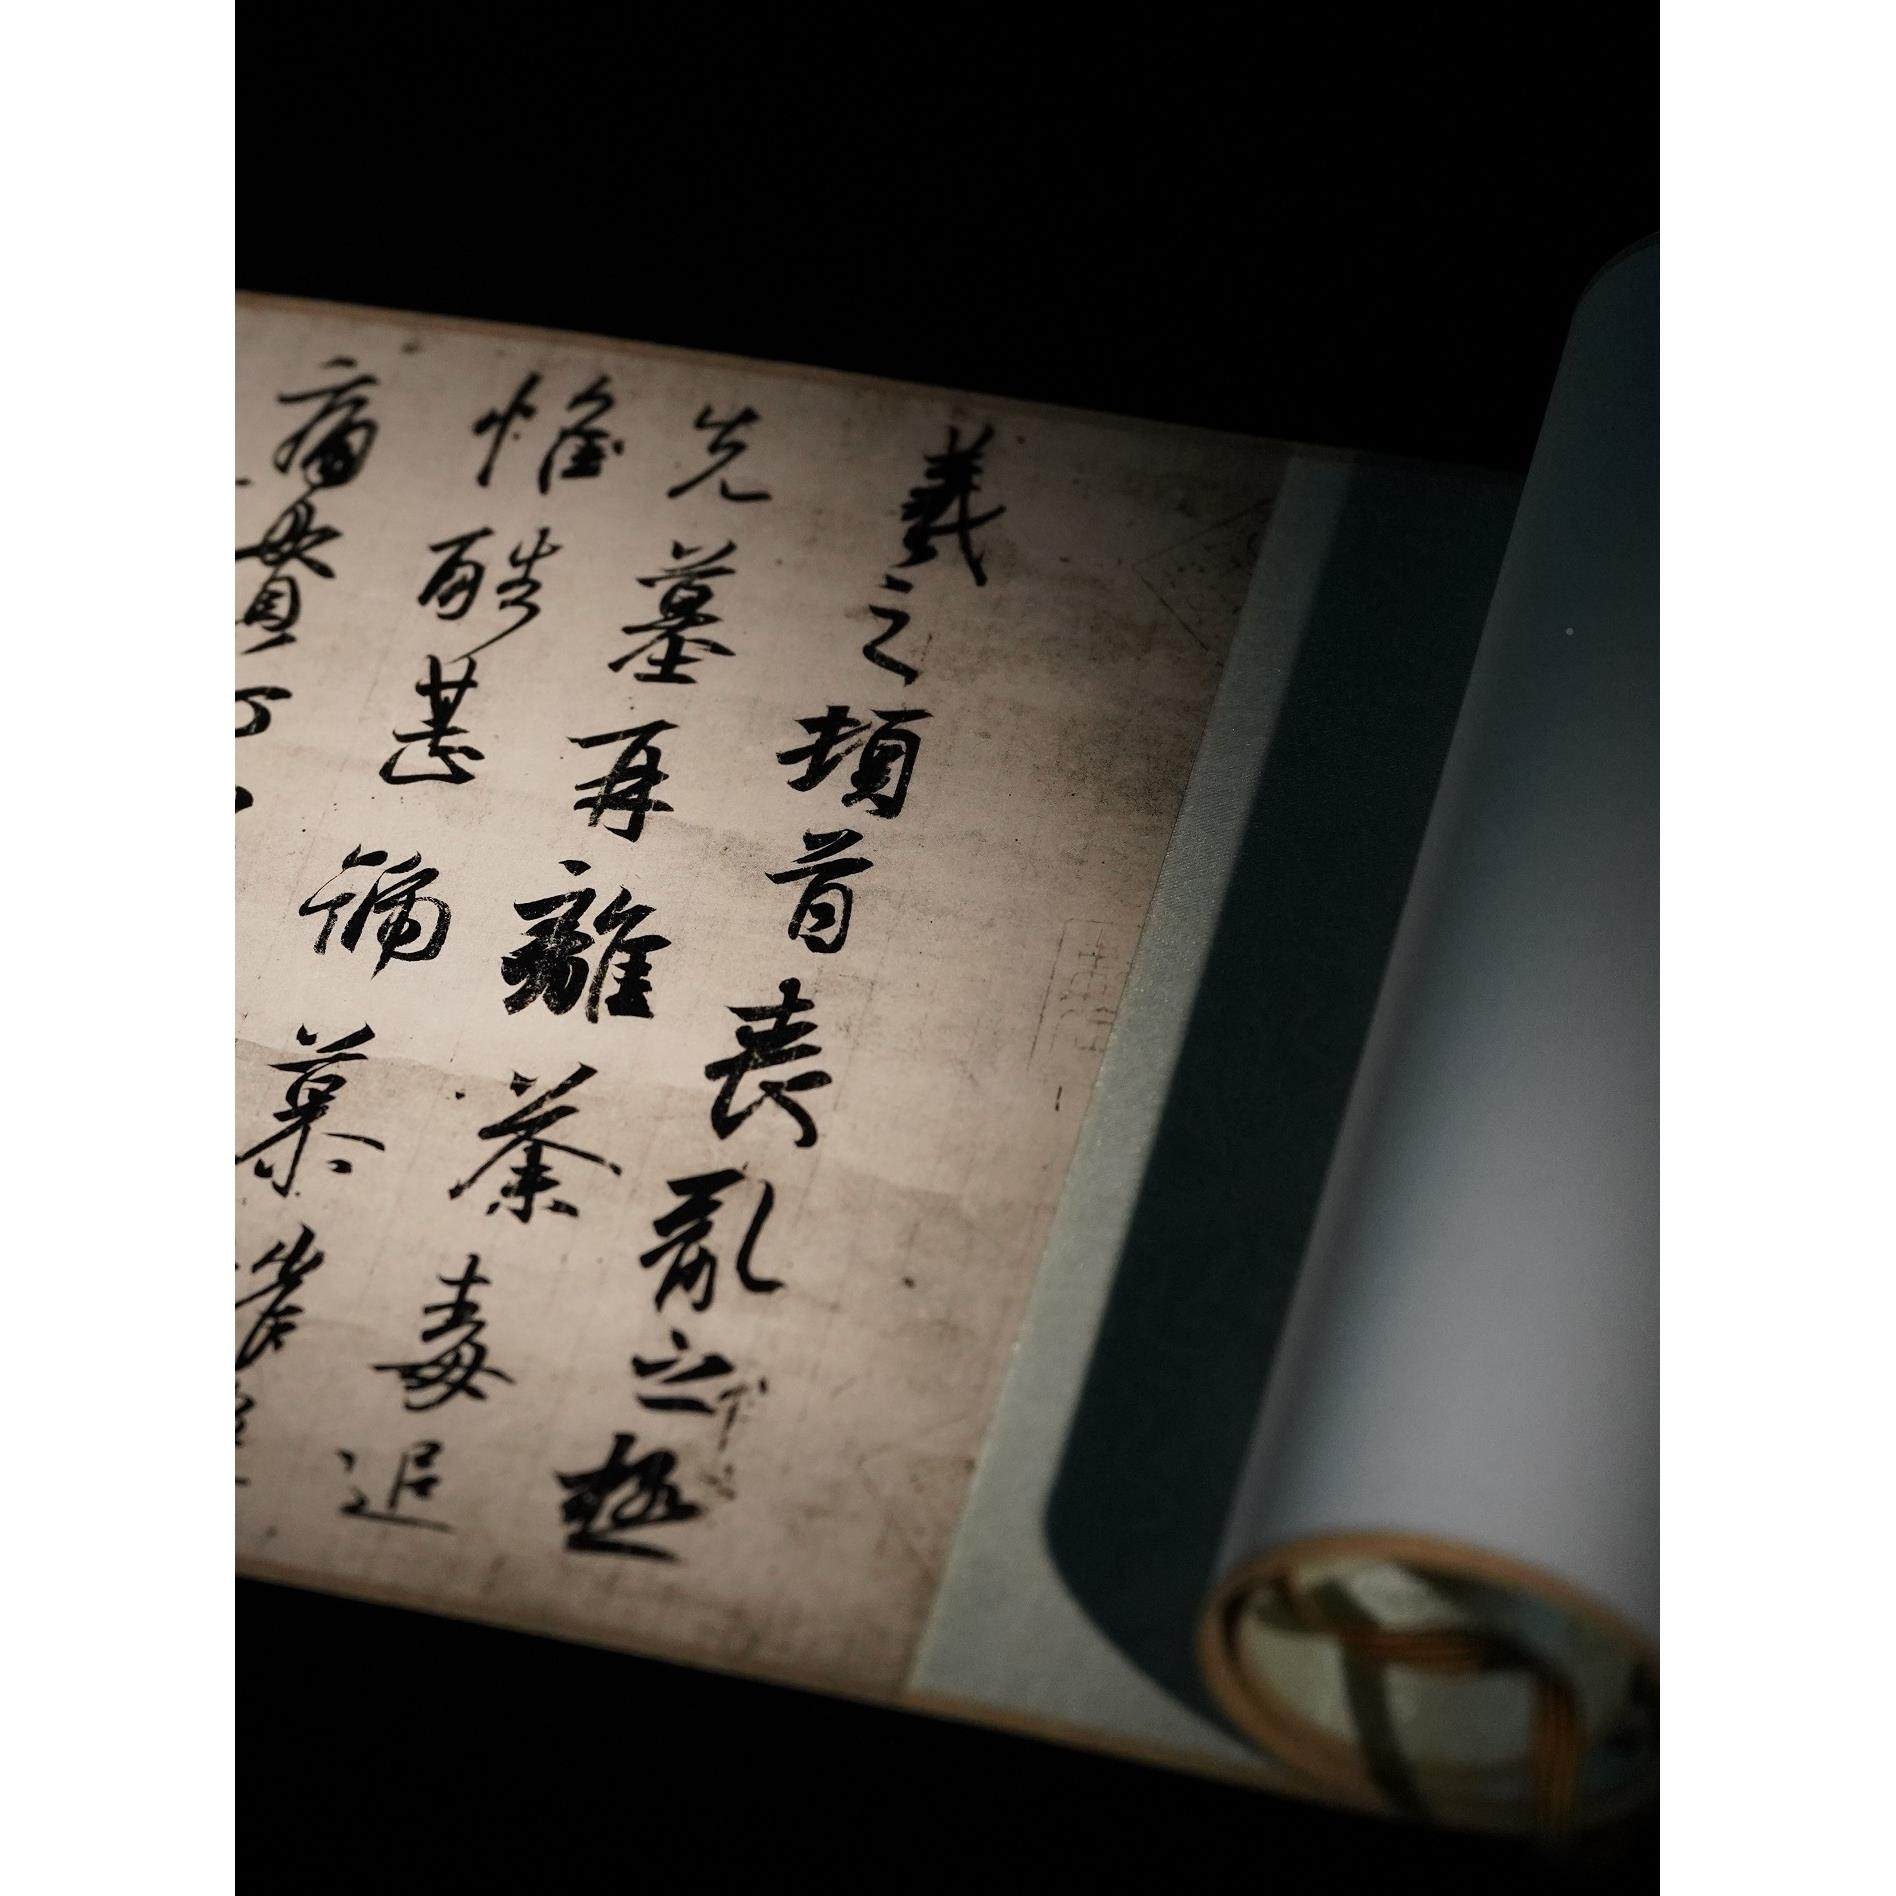 羲之頓首喪亂之極
先墓再離荼毒追
惟酷甚號慕
痛貫